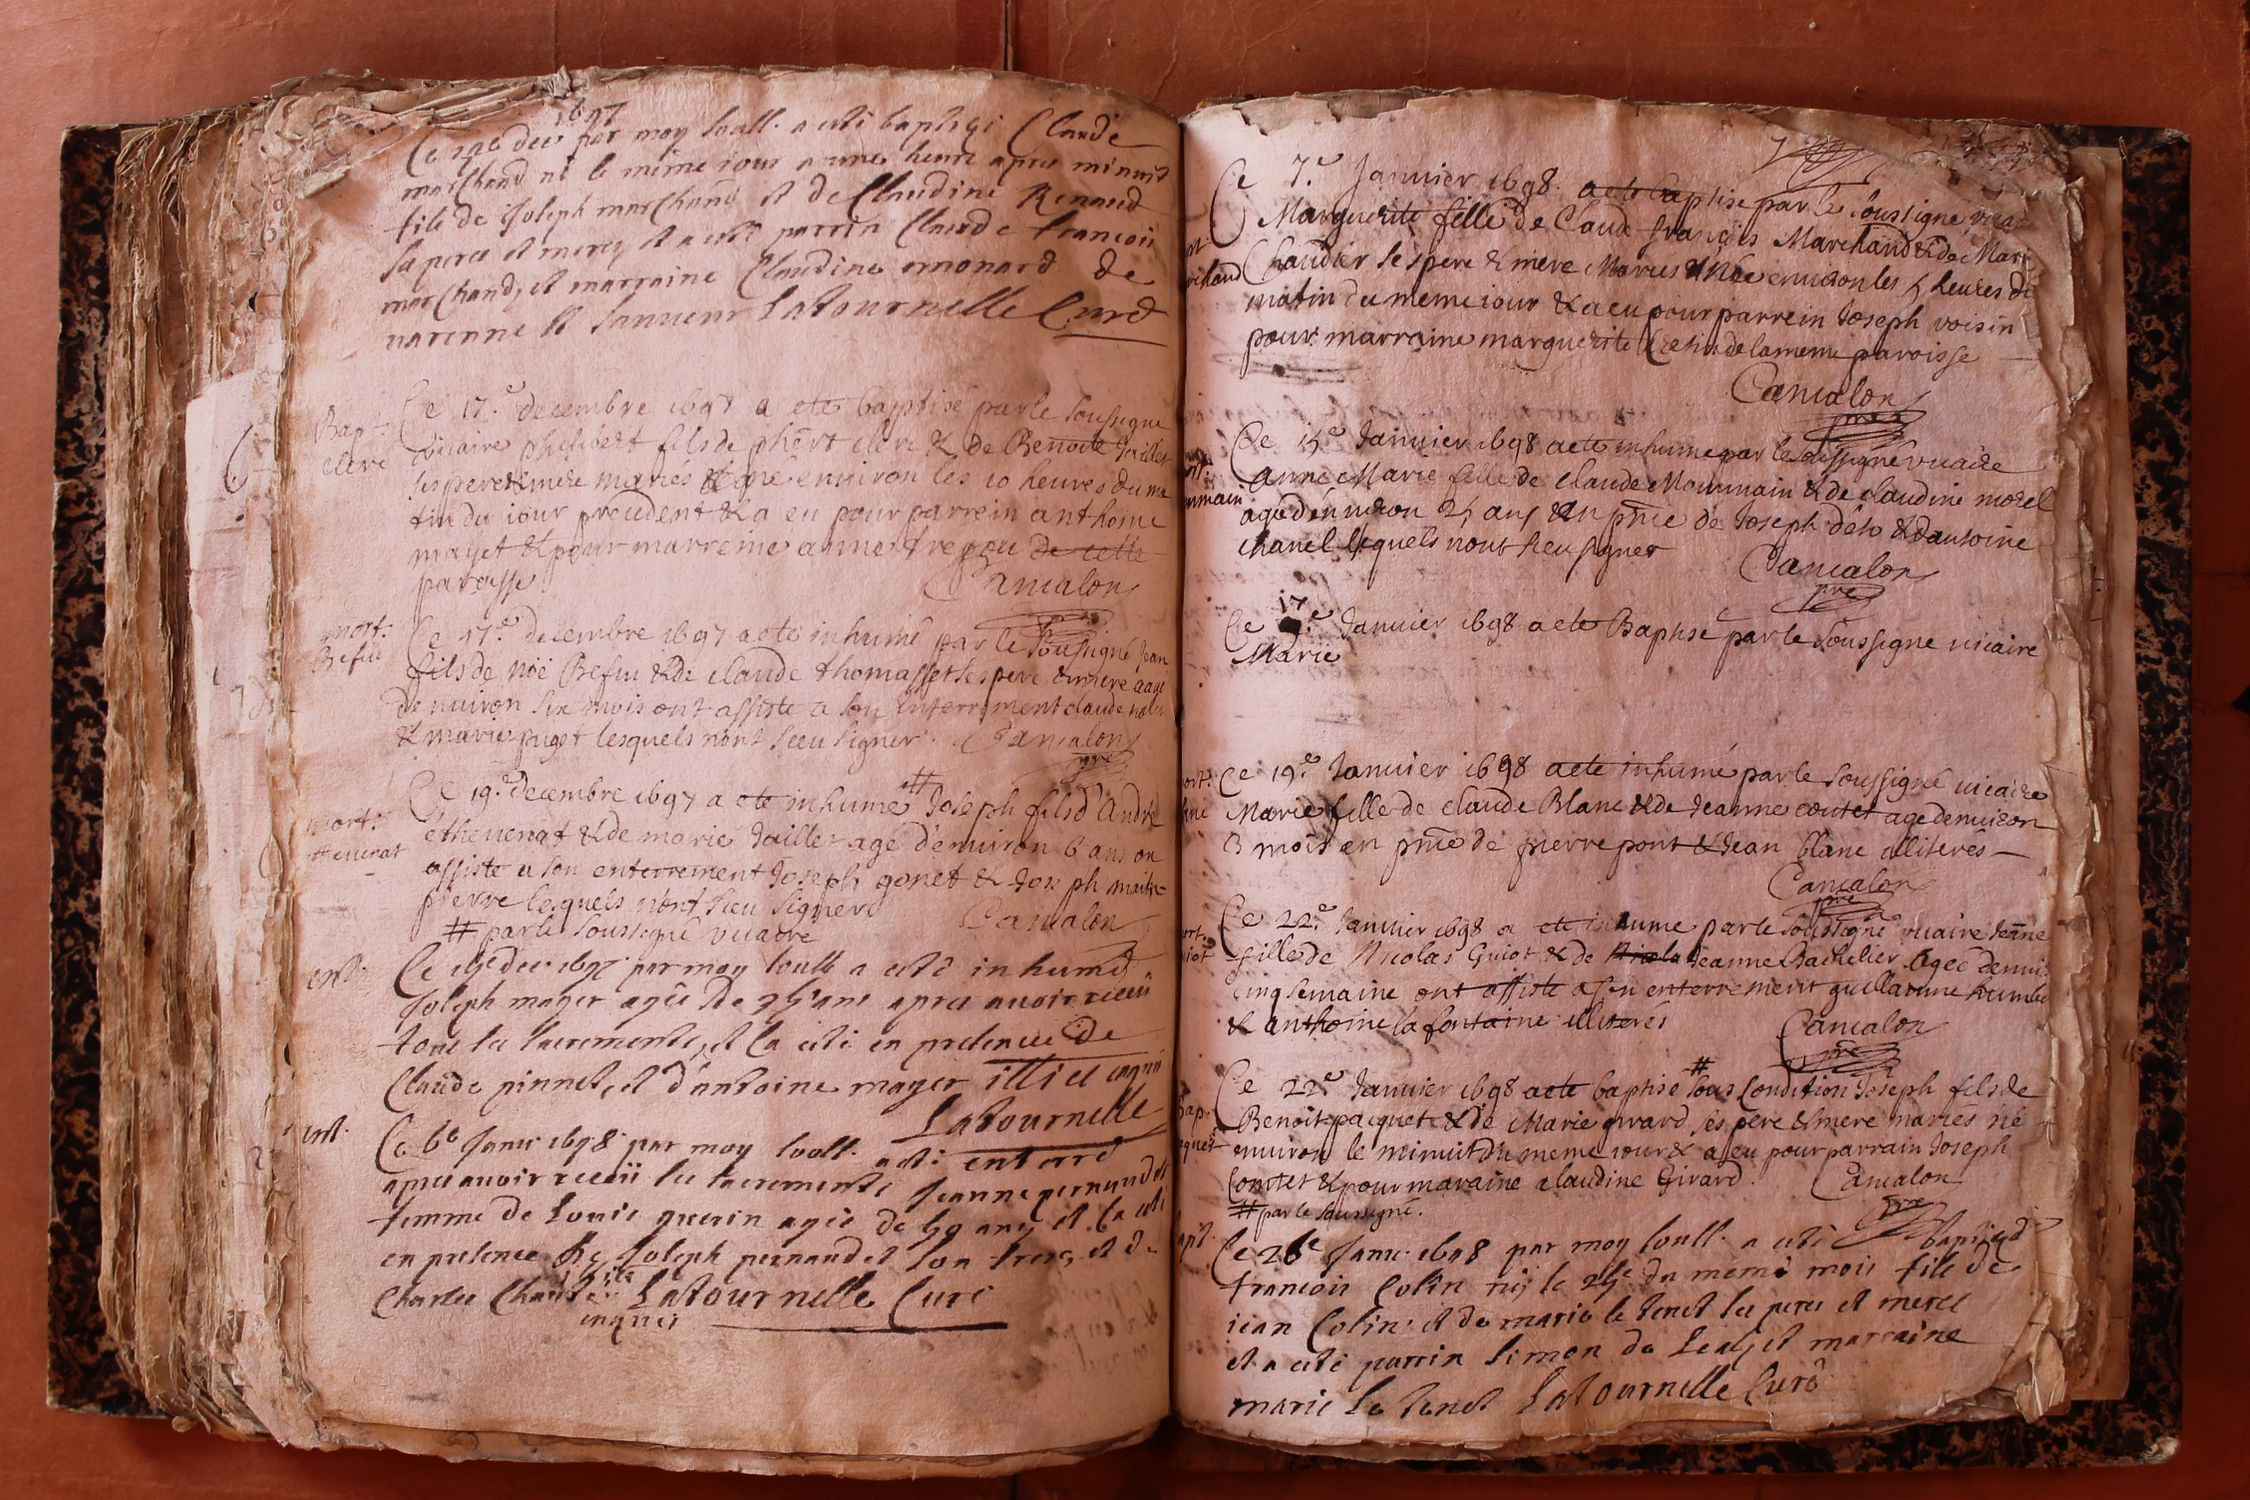 1697
Ce dec par moy soubs. a esté baptisé Claude
marchand né le même iour a une heure apres minuit
fils de Joseph marchand et de Claudine Renaud
ses pere et mere, et a esté parrin Claude françois
marchand, et marraine Claudine monard de
varenne St sauveur LaTournelle Curé
Bap.
clerc
Ce 17.e decembre 1697 a ete baptisé par le soussigne
vicaire philibert fils de phbert clerc & de Benoite Taillet
ses pere & mere mariés & né environ les 10 heures du ma
tin du iour precedent & a eu pour parrein anthoine
mayet & pour marreine anne de cette
paroisse
Camalon
mort.
Befui
Ce 17.e decembre 1697 a ete inhumé par le soussigné Jean
fils de noë Befui & de claude thomasset ses pere & mere aagé
denviron six mois ont assisté a son enterrement claude
& marie puget lesquels n'ont sceu signer. Camalon
pre
mort.
thevenat
Ce 19.e decembre 1697 a ete inhumé # Joseph fils d'André
thevenat & de marie Taillet agé d'environ 6 ans on
assisté a son enterrement Joseph gonet & Joseph maitre
pierre lesquels n'ont sceu signer
Camalon
# par le soussigné vicaire
ent.
Ce dec 1697 par moy soubs a esté inhumé
Joseph mayer agée de ans apres avoir receü
tous les sacrements, et la esté en presence de
Claude pinnet, et d'antoine mayer illi et enquis
LaTournelle
ent.
Ce 6e Janv. 1698 par moy soubs. a esté enterré
apres avoir receü les sacrements Jeanne pernaudet
femme de Louis guerin agée de 59 ans et la esté
en presence de Joseph pernaudet son frere, et de
Charles LaTournelle Curé
enquis
Ce 7.e Janvier 1698. a ete Baptise par le soussigne vicai
Marguerite fille de Claude françois Marchand & de Mari
rchand
Chaudier ses pere & mere Maries & Née environ les 5 heures du
matin du meme iour & a eu pour parrein Joseph voisin
pour marraine marguerite Cretin de la meme paroisse
Camalon
pre
Ce 15.e Janvier 1698 a ete inhume par le soussigné vicaire
anne Marie fille de claude Mourmain & de claudine morel
rmain
agé d'environ 2 ans & en pnce de Joseph & d'antoine
chanel lesquels n'ont sceu signer
Camalon
pre
Ce 17.e Janvier 1698 a ete Baptise par le soussigne vicaire
Marie
ort.
lanc
Ce 19.e Janvier 1698 a ete inhumé par le soussigné vicaire
Marie fille de claude Blanc & de Jeanne coutet age denviron
3 mois en pnce de pierre pont & Jean blanc illiterés
Camalon
pre
ort.
iot
Ce 22.e Janvier 1698 a ete inhume par le soussigne vicaire Jenne
fille de Nicolas Guiot & de Jeanne Bachelier Agee denvi
cinq semaine ont assisté a son enterrement guillaume humbe
& anthoine la fontaine illiteres
Camalon
pre
Bap.
quet
Ce 22.e Janvier 1698 a ete baptise # sous Condition Joseph fils de
Benoit pacquet & de Marie girard ses pere & mere maries né
environ le minuit du meme iour & a eu pour parrain Joseph
Coutet & pour maraine claudine Girard.
Camalon
pre
# par le soussigné.
apt.
Ce 26e Janv. 1698 par moy soubs. a esté baptisé
françois Colin né le 25e du meme mois fils de
iean Colin et de marie le tenet ses peres et meres
et a esté parrin Simon de Leal et marraine
marie Le tenet LaTournelle Curé